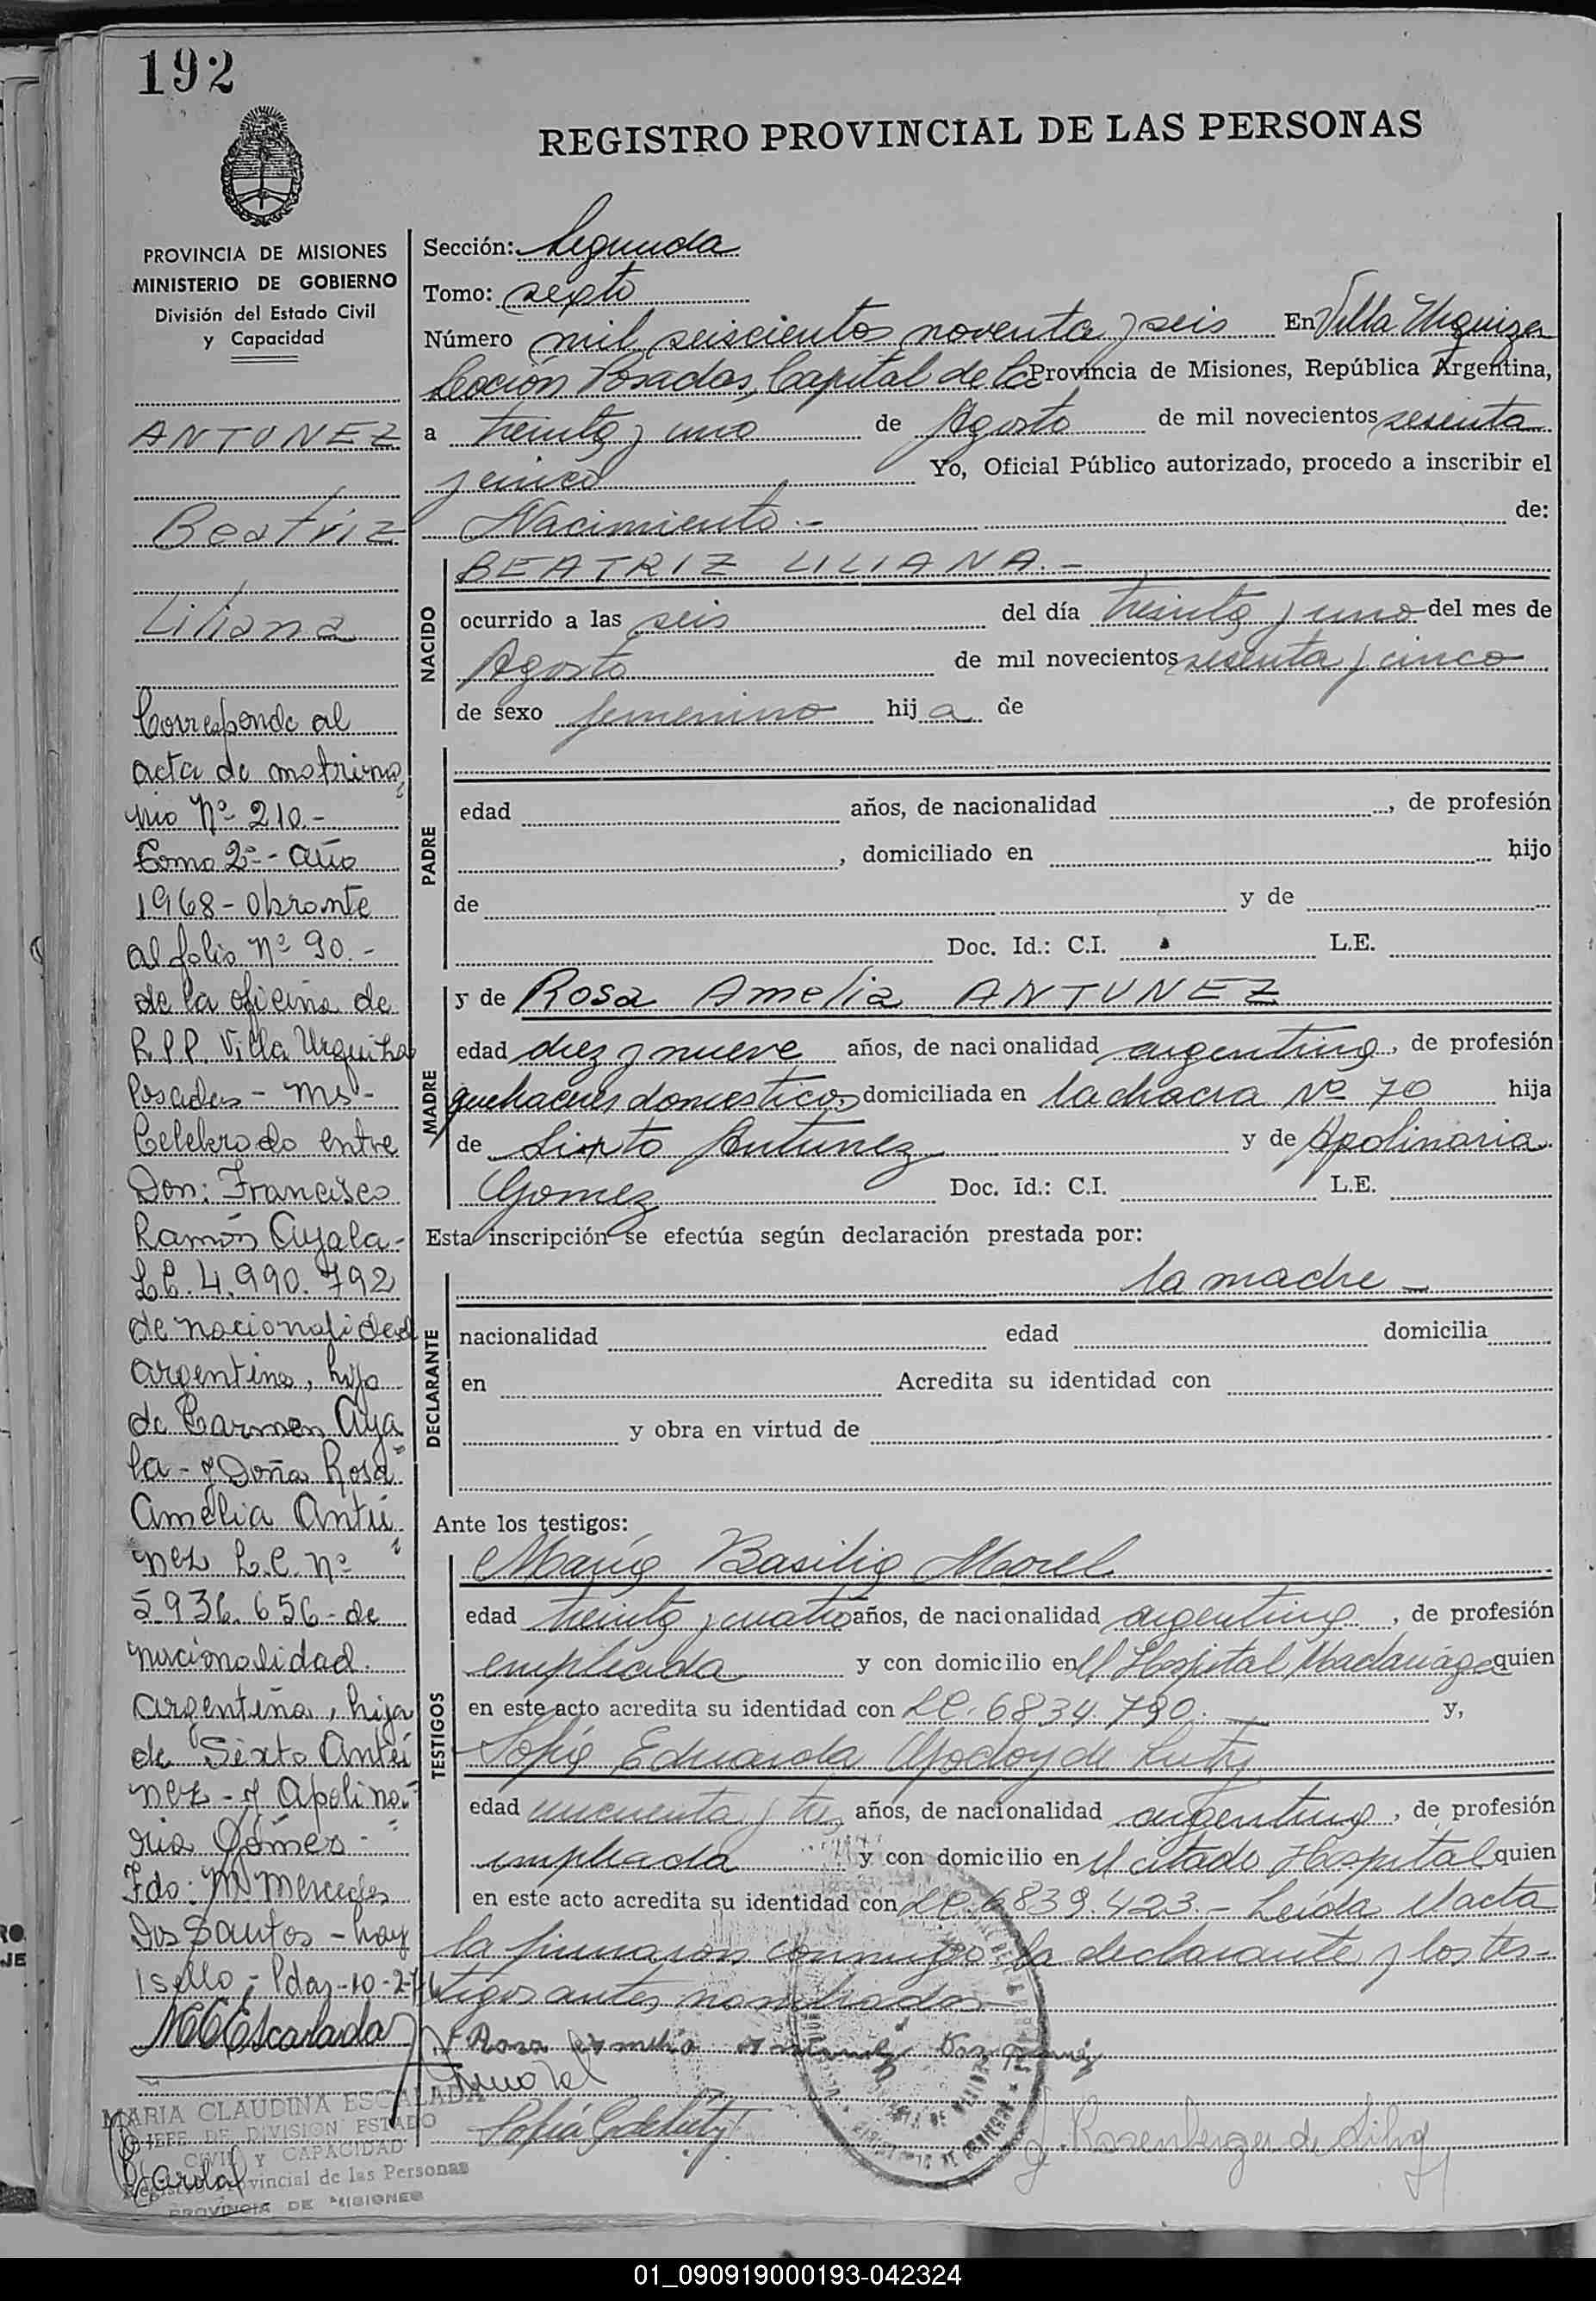 192
REGISTRO PROVINCIAL DE LAS PERSONAS
PROVINCIA DE MISIONES
MINISTERIO DE GOBIERNO
División del Estado Civil
y Capacidad
ANTUNEZ
Beatriz
Liliana
Corresponde al
acta de matrimo
nio Nº 210.-
Tomo 2º - año
1968 - obrante
al folio Nº 90.-
de la oficina de
R.P.P. Villa Urquiza
Posadas - Ms -
Celebrado entre
Don: Francisco
Ramón Ayala -
L.E. 4.990.792
de nacionalidad
argentina, hijo
de Carmen Aya
la - y Doña Rosa
Amelia Antú
nez L.C. Nº
5.936.656 - de
nacionalidad
argentina, hija
de Sixto Antú
nez - y Apolina
ria Gómez -
Fdo: M. Mercedes
Dos Santos - hay
1 sello - Pdas - 10-2-
MCEscalada
MARIA CLAUDINA ESCALADA
JEFE DE DIVISION ESTADO
CIVIL Y CAPACIDAD
Registro Provincial de las Personas
PROVINCIA DE MISIONES
Sección: Segunda
Tomo: sexto
Número mil seiscientos noventa y seis En Villa Urquiza
Sección Posadas, Capital de la Provincia de Misiones, República Argentina,
a treinta y uno de Agosto de mil novecientos sesenta
y cinco Yo, Oficial Público autorizado, procedo a inscribir el
Nacimiento.- de:
NACIDO
BEATRIZ LILIANA.-
ocurrido a las seis del día treinta y uno del mes de
Agosto de mil novecientos sesenta y cinco
de sexo femenino hij a de
PADRE
edad años, de nacionalidad , de profesión
, domiciliado en hijo
de y de
Doc. Id.: C.I. L.E.
MADRE
y de Rosa Amelia ANTUNEZ
edad diez y nueve años, de nacionalidad argentina, de profesión
quehaceres domesticos domiciliada en la chacra Nº 70 hija
de Sixto Antunez y de Apolinaria
Gomez Doc. Id.: C.I. L.E.
Esta inscripción se efectúa según declaración prestada por:
DECLARANTE
la madre -
nacionalidad edad domicilia
en Acredita su identidad con
y obra en virtud de
Ante los testigos:
TESTIGOS
María Basilia Morel
edad treinta y cuatro años, de nacionalidad argentina, de profesión
empleada y con domicilio en el Hospital Madariaga quien
en este acto acredita su identidad con LC. 6834.790. y,
Sofia Eduarda Godoy de Luty
edad cincuenta y tres años, de nacionalidad argentina, de profesión
empleada y con domicilio en el citado Hospital quien
en este acto acredita su identidad con LC. 6839.423.- Leida el acta
la firmaron conmigo la declarante y los tes-
tigos antes nombrados
Rosa Amelia Antunez
Sofía G de Luty
J. Rosenberger de Silva
01_090919000193-042324